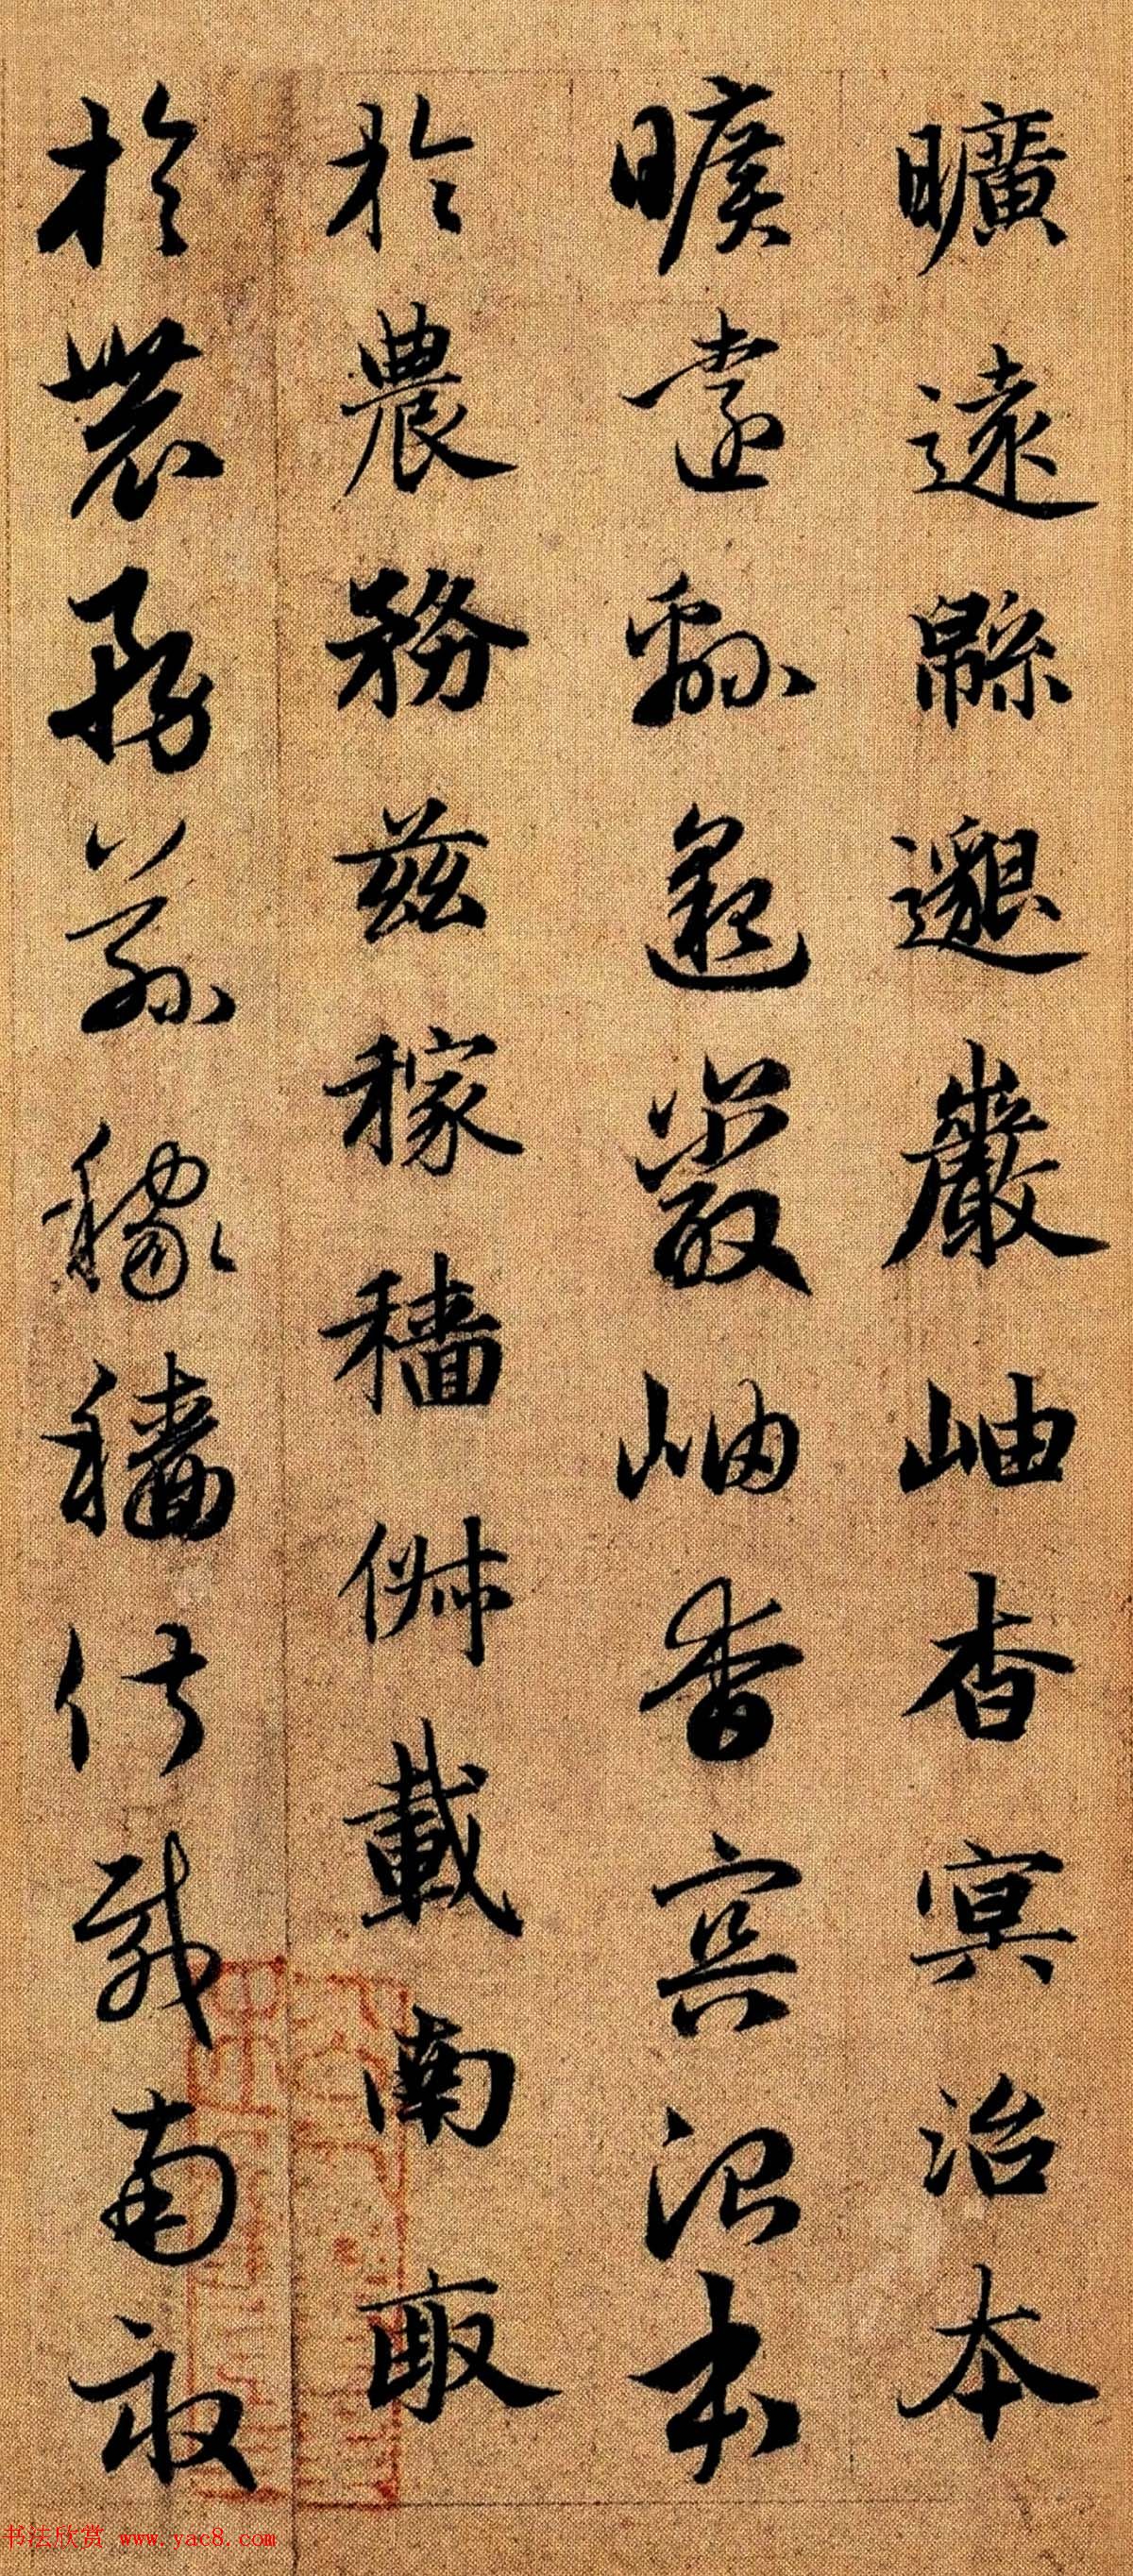 曠遠緜邈巖岫杳冥治本
曠遠緜邈巖岫杳冥治本
於農務茲稼穡俶載南畝
於農務茲稼穡俶載南畝
书法欣赏 www.yac8.com